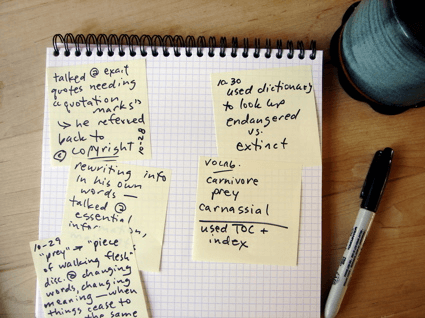 talked @ exact
quotes needing
quotation
marks
↳ he referred
back to
© copyright
rewriting info
in his own
words —
talked @
essential
10-29
"prey" → "piece
of walking flesh"
disc. @ changing
words, changing
meaning — when
things cease to
the same
10-30
used dictionary
to look up
endangered
vs.
extinct
vocab.
carnivore
prey
carnassial
used TOC +
index